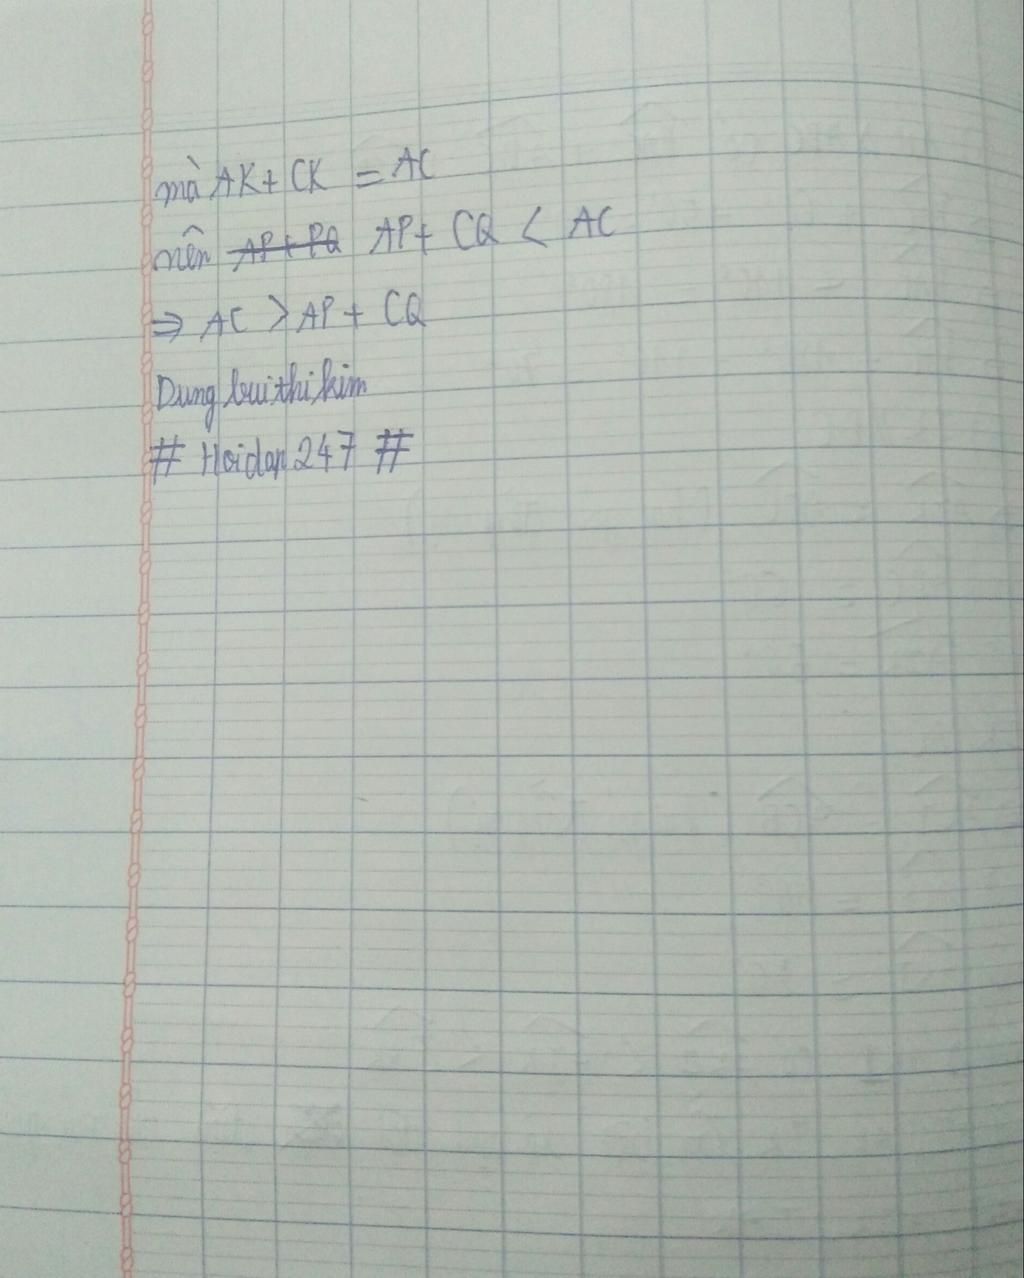 mà AK + CK = AC
nên AP + PQ AP + CQ < AC
⇒ AC > AP + CQ
Dung buithikim
# Hoidap247 #